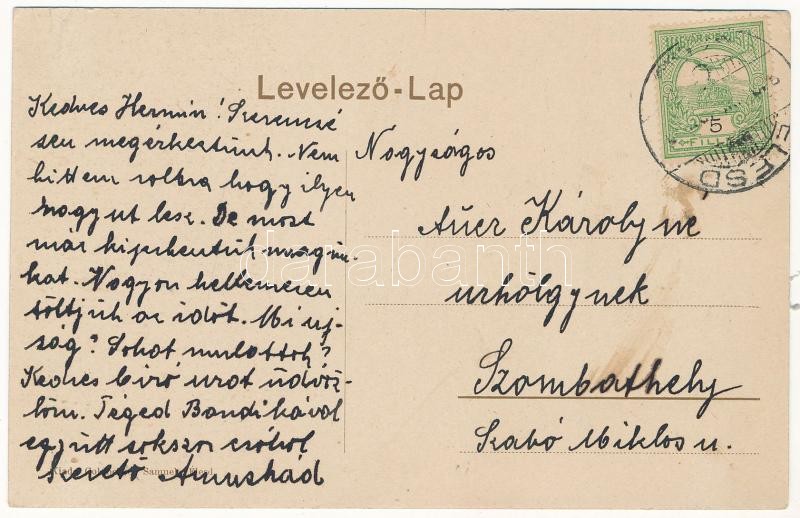 Levelező-Lap
Kedves Hermin! Szerencsé
sen megérkeztünk. Nem
hittem volna hogy ilyen
nagy út lesz. De most
már kipihentük magun-
kat. Nagyon kellemesen
töltjük az időt. Mi uj-
ság? Sokat mulattok?
Kedves Biró urat üdvöz-
löm. Téged Bandikával
együtt sokszor csókol
szerető Annuskád
Nagyságos
Auer Károly né
urhölgynek
Szombathely
Szabó Miklos u.
MAGYAR KIR. POSTA
5
FILLÉR
ÉLESD
darabanth